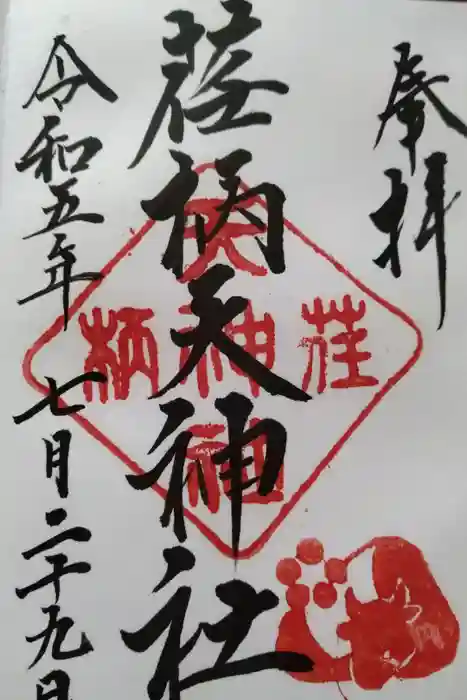 奉拝
荏柄天神社
令和五年七月二十九日
荏柄
天神社